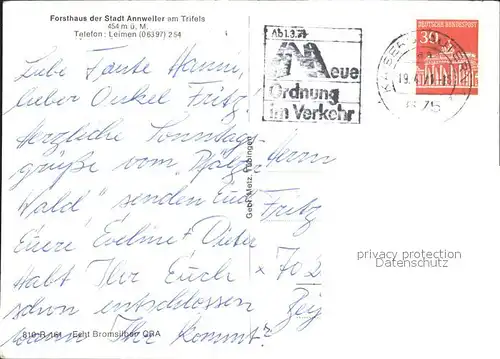 Forsthaus der Stadt Annweiler am Trifels
454 m ü. M.
Telefon: Leimen (06397) 254
Liebe Tante Hanni,
lieber Onkel Fritz!
Herzliche Sonntags-
grüße vom "Pfälzer
Wald" senden Euch
Eure Eveline + Dieter
Habt Ihr Euch
schon entschlossen
wann Ihr kommt?
810-R-161 Echt Bromsilber CRA
Gebr. Metz, Tübingen
Ab 1.3.71
Neue
Ordnung
im Verkehr
DEUTSCHE BUNDESPOST
30
19.4.71
675
Herrn
Fritz
702
privacy protection
Datenschutz